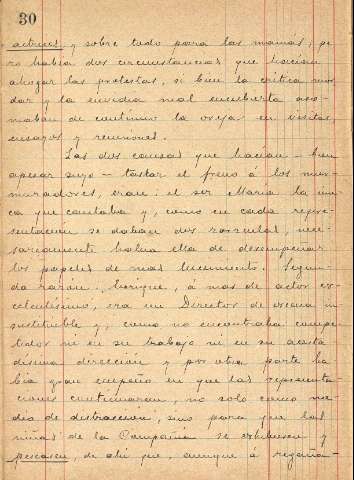 30
actrices y sobre todo para las mamás, pe-
ro había dos circunstancias que hacían
ahogar las protestas, si bien la crítica mor-
daz y la envidia mal encubierta aso-
maban de continuo la oreja en visitas,
ensayos y reuniones.
Las dos causas que hacían - bien
apesar suyo - tascar el freno á los mur-
muradores, eran: el ser María la úni-
ca que cantaba y, como en cada repre-
sentación se daban dos zarzuelas, nece-
sariamente había ella de desempeñar
los papeles de mas lucimiento. Segun-
da razón, Enrique, á mas de actor ex-
celentísimo, era un Director de escena in-
sustituible y, como no encontraba compe-
tidor ni en su trabajo ni en su acerta-
dísima dirección y por otra parte ha-
bía gran empeño en que las representa-
ciones continuaran, no solo como me-
dio de distracción, sino para que las
niñas de la Compañía se exhibiesen y
pescasen, de ahí que, aunque á regaña-